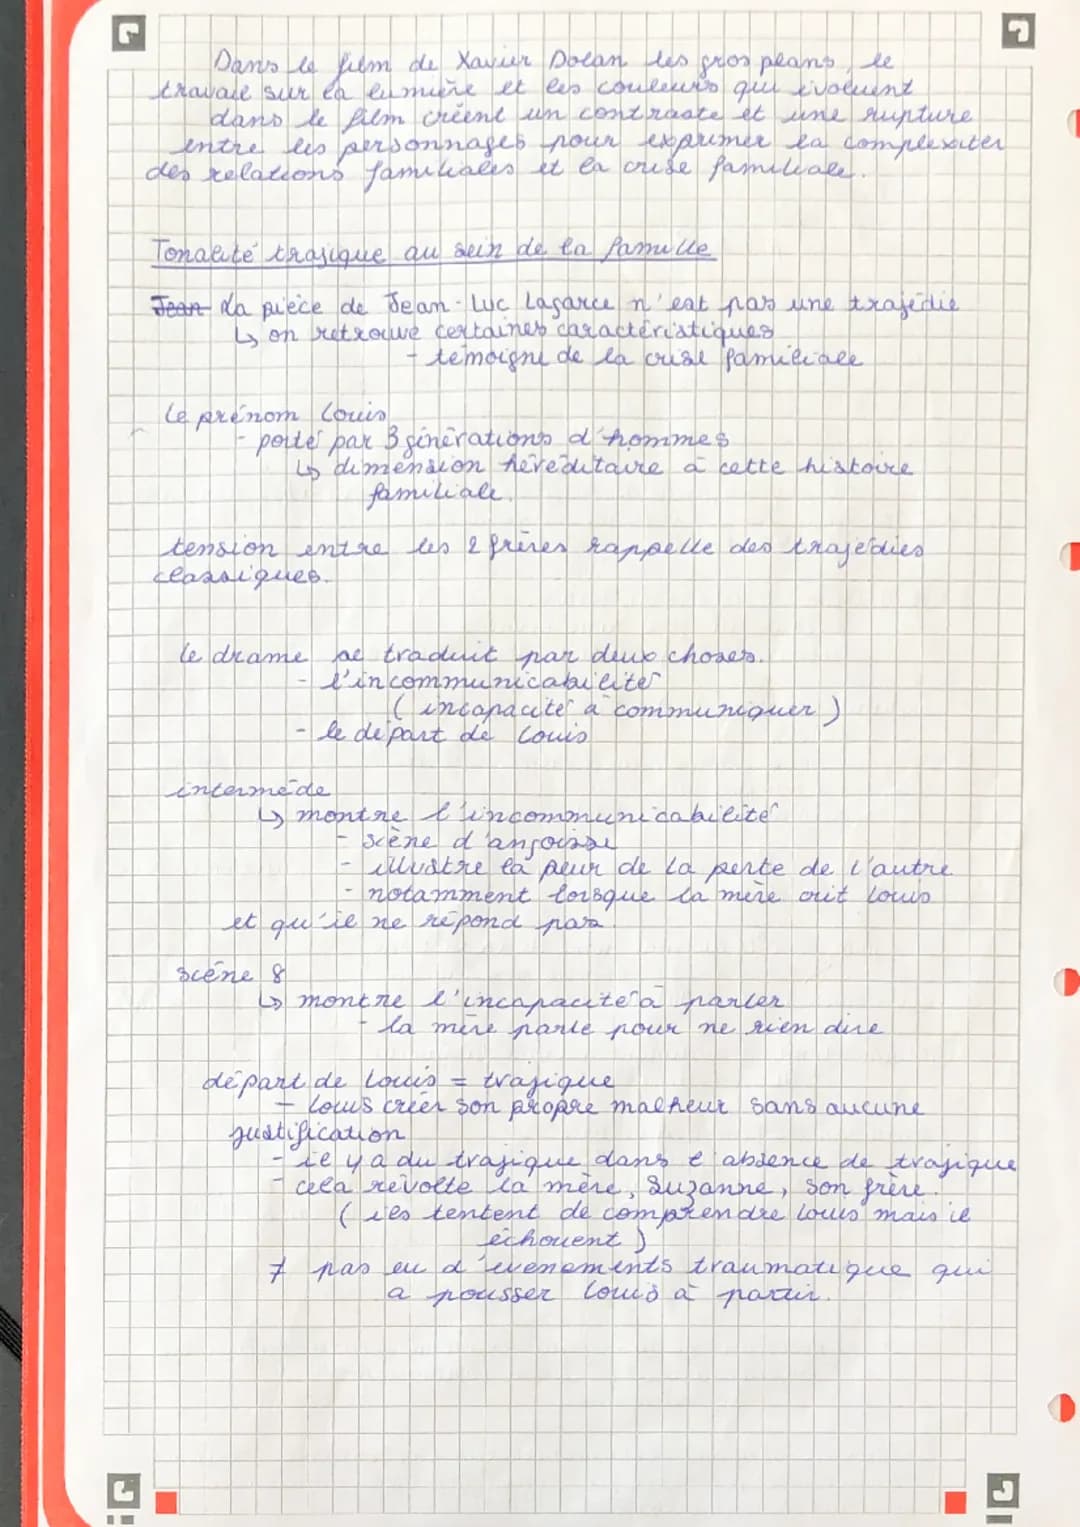 Dans le film de Xavier Dolan les gros plans, le
travail sur la lumière et les couleurs qui évoluent
dans le film créent un contraste et une rupture
entre les personnages pour exprimer la complexiter
des relations familiales et la crise familiale.
Tonalité trajique au sein de la famille
Jean La pièce de Jean-Luc Lagarce n'est pas une trajédie
↳ on retrouve certaines caractéristiques
- témoigne de la crise familiale
Le prénom Louis
- porté par 3 générations d'hommes
↳ dimension héréditaire à cette histoire
familiale.
tension entre les 2 frères rappelle des trajédies
classiques.
Le drame se traduit par deux choses.
- l'incommunicabilité
( incapacité à communiquer )
- le départ de Louis
intermède
↳ montre l'incommunicabilité
- scène d'angoisse
- illustre la peur de la perte de l'autre
- notamment lorsque la mère crit Louis
et qu'il ne répond pas.
scène 8
↳ montre l'incapacité à parler
- la mère parle pour ne rien dire
départ de Louis = trajique
- Louis créer son propre malheur sans aucune
justification
- il y a du trajique dans l'absence de trajique
- cela révolte la mère, Suzanne, son frère.
( ils tentent de comprendre Louis mais il
échouent )
≠ pas eu d'évenements traumatique qui
a pousser Louis à partir.